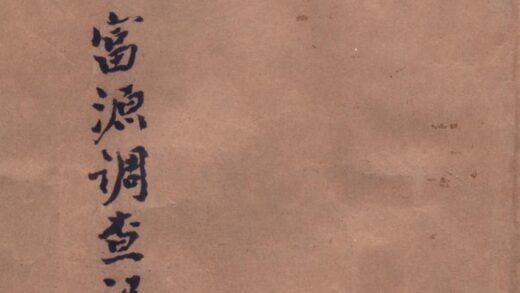 富源调查